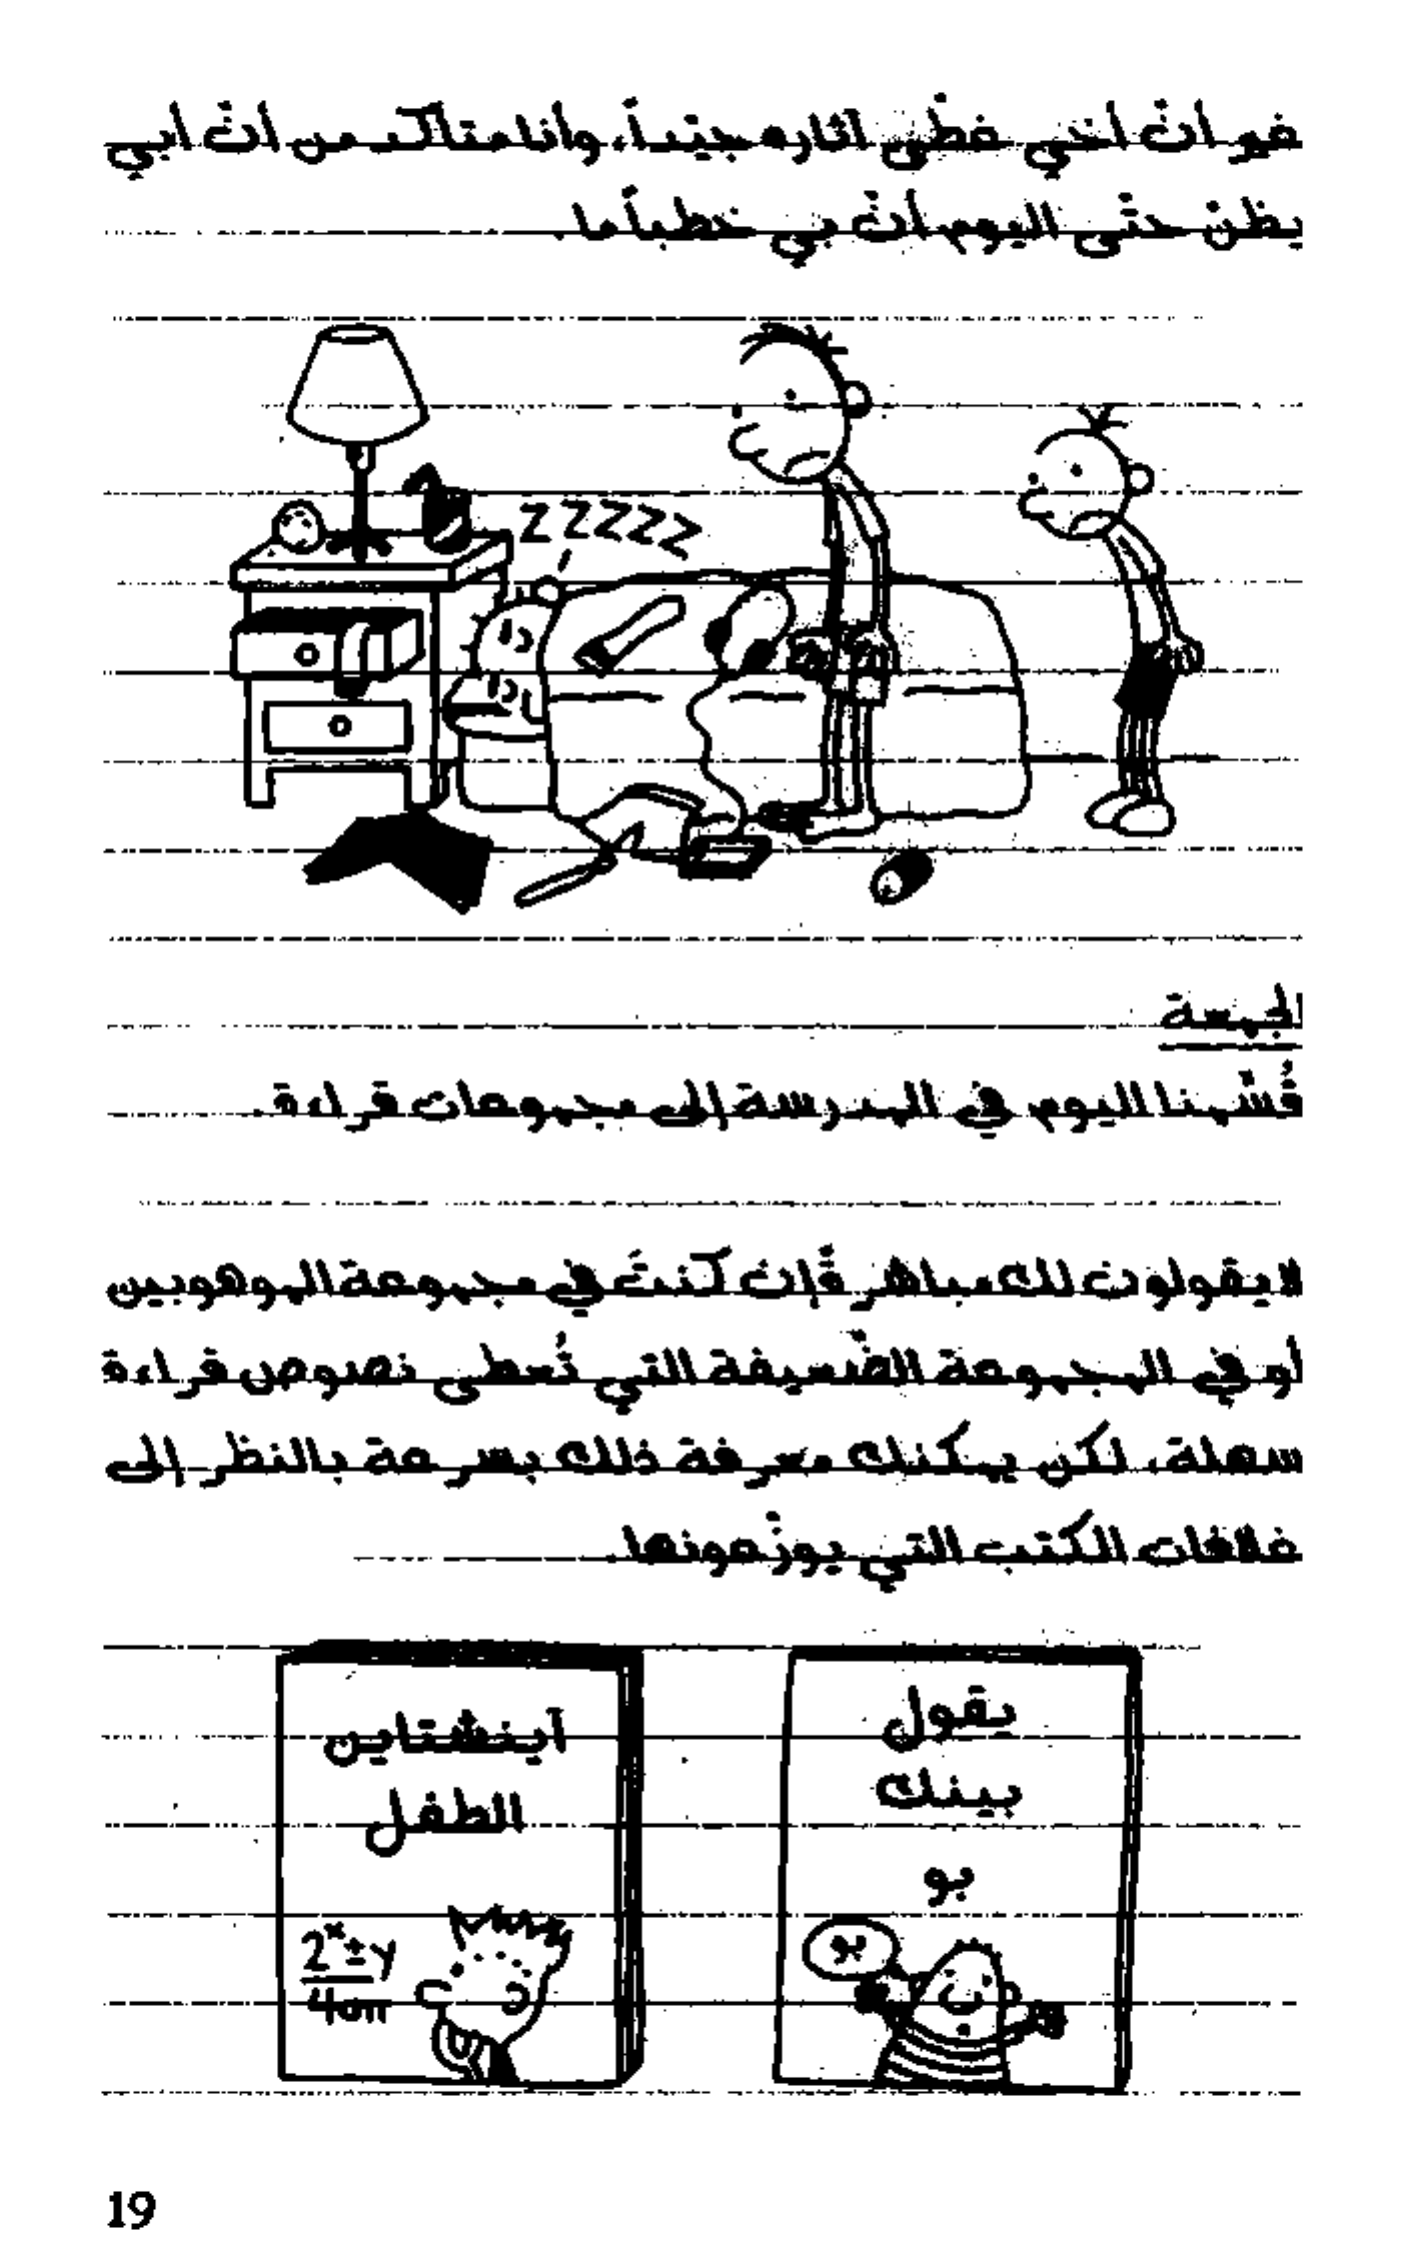 غير أنّ أخي غطّى آثاره جيّداً، وأنا متأكد من أنّ أبي
يظنّ حتّى اليوم أنّ بي خطباً ما.
ZZZZZ
الجمعة
قُسّمنا اليوم في المدرسة إلى مجموعات قراءة.
لا يقولون لك مباشرةً إن كنتَ في مجموعة الموهوبين
أو في المجموعة الضّعيفة التي تُعطى نصوص قراءة
سهلة، لكن يمكنك معرفة ذلك بسرعة بالنظر إلى
غلافات الكتب التي يوزّعونها.
يقول
بينك
بو
بو
آينشتاين
الطفل
2ˣ±y
19